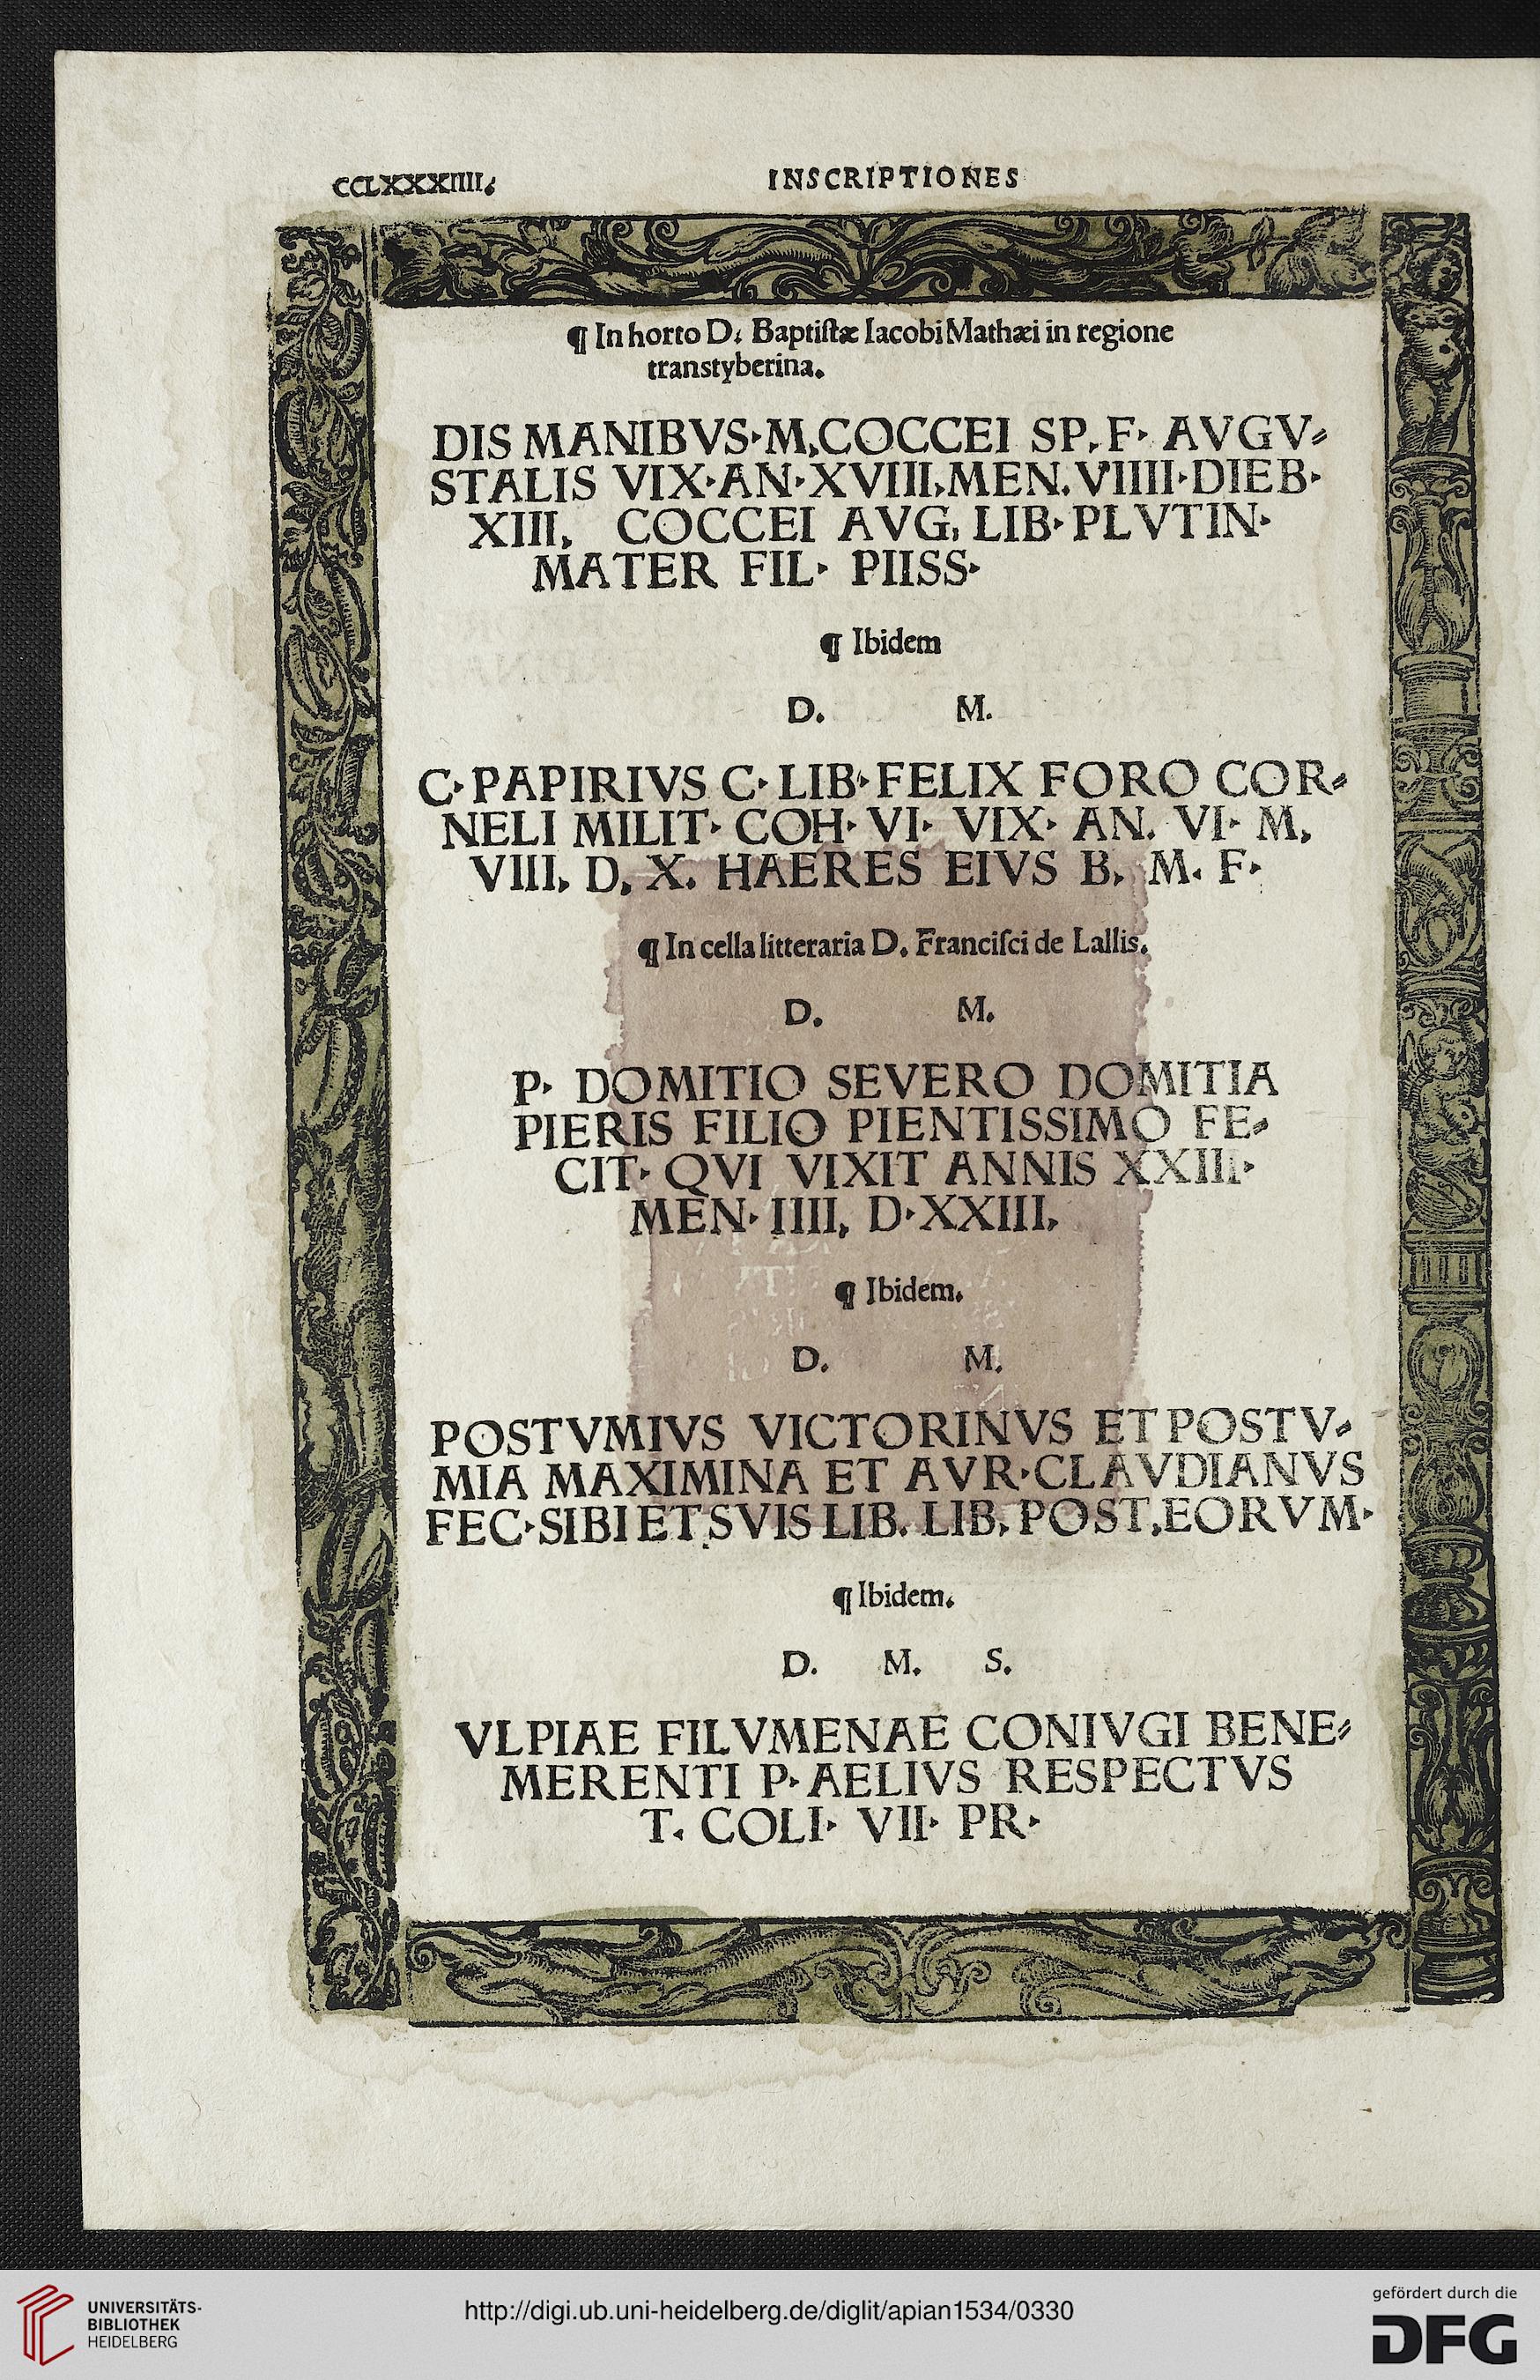 CCLXXXIIII.
INSCRIPTIONES
¶ In horto D. Baptiſtæ Iacobi Mathæi in regione
transtyberina.
DIS MANIBVS·M,COCCEI SP,F· AVGV⸗
STALIS VIX·AN·XVIII,MEN.VIIII·DIEB·
XIII, COCCEI AVG, LIB·PLVTIN·
MATER FIL· PIISS·
¶ Ibidem
D. M.
C·PAPIRIVS C·LIB·FELIX FORO COR⸗
NELI MILIT· COH· VI· VIX· AN. VI· M,
VIII, D, X. HAERES EIVS B, M. F·
¶ In cella litteraria D. Franciſci de Lallis.
D. M.
P· DOMITIO SEVERO DOMITIA
PIERIS FILIO PIENTISSIMO FE⸗
CIT· QVI VIXIT ANNIS XXIII·
MEN· IIII, D·XXIII,
¶ Ibidem.
D. M.
POSTVMIVS VICTORINVS ET POSTV⸗
MIA MAXIMINA ET AVR·CLAVDIANVS
FEC·SIBI ET SVIS LIB. LIB, POST,EORVM·
¶ Ibidem.
D. M. S.
VLPIAE FILVMENAE CONIVGI BENE⸗
MERENTI P·AELIVS RESPECTVS
T. COLI· VII· PR·
UNIVERSITÄTS-
BIBLIOTHEK
HEIDELBERG
http://digi.ub.uni-heidelberg.de/diglit/apian1534/0330
gefördert durch die
DFG